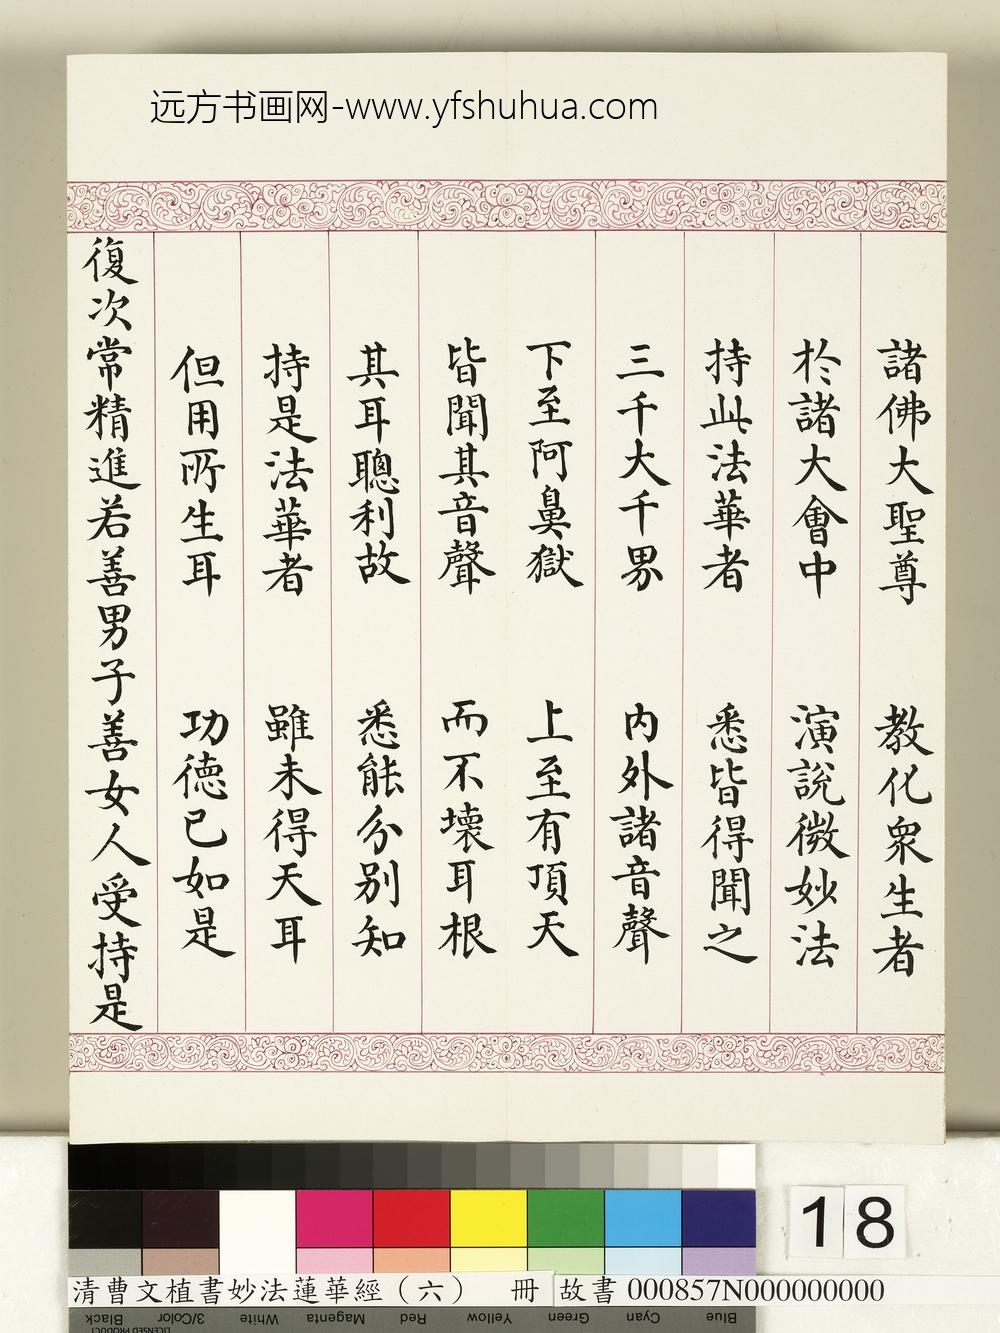 远方书画网-www.yfshuhua.com
諸佛大聖尊　教化衆生者
於諸大會中　演說微妙法
持此法華者　悉皆得聞之
三千大千界　内外諸音聲
下至阿鼻獄　上至有頂天
皆聞其音聲　而不壞耳根
其耳聰利故　悉能分别知
持是法華者　雖未得天耳
但用所生耳　功德已如是
復次常精進若善男子善女人受持是
18
清曹文植書妙法蓮華經（六）　冊 故書 000857N000000000
Black 3/Color White Magenta Red Yellow Green Cyan Blue
LICENSED PRODUCT